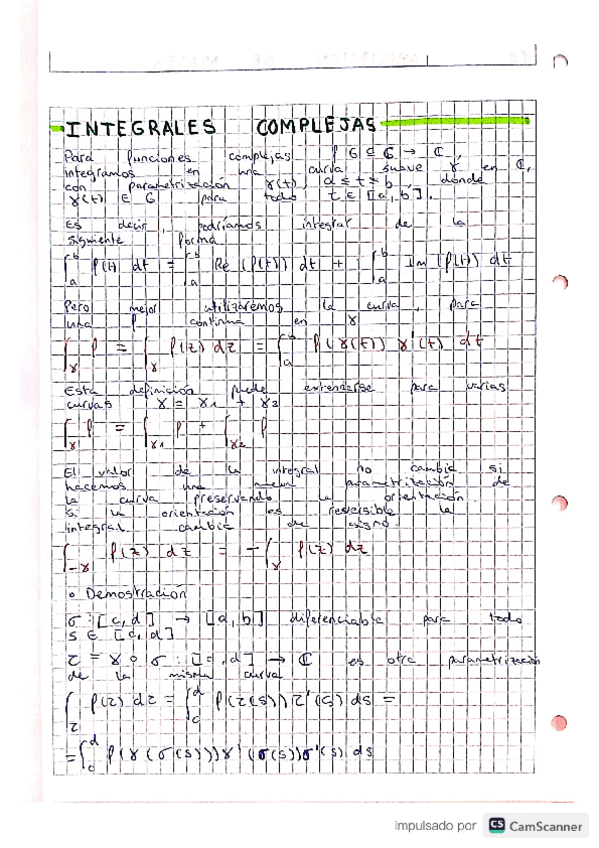 INTEGRALES COMPLEJAS
Para funciones complejas f G ⊆ C → C,
integramos en una curva suave γ en C,
con parametrización γ(t), a ≤ t ≤ b, donde
γ(t) ∈ G para todo t ∈ [a, b].
Es decir, podríamos integrar de la
siguiente forma
∫_a^b f(t) dt = ∫_a^b Re(f(t)) dt + ∫_a^b Im(f(t)) dt
Pero mejor utilizaremos la curva, para
una f continua en γ
∫_γ f = ∫_γ f(z) dz = ∫_a^b f(γ(t)) γ'(t) dt
Esta definición puede extenderse para varias
curvas γ = γ1 + γ2
∫_γ f = ∫_γ1 f + ∫_γ2 f
El valor de la integral no cambia si
hacemos una nueva parametrización de
la curva preservando la orientación.
Si la orientación es reversible la
integral cambia de signo.
∫_-γ f(z) dz = -∫_γ f(z) dz
• Demostración
σ: [c, d] → [a, b] diferenciable para todo
s ∈ [c, d]
τ = γ ∘ σ : [c, d] → C es otra parametrización
de la misma curva
∫_τ f(z) dz = ∫_c^d f(τ(s)) τ'(s) ds =
= ∫_c^d f(γ(σ(s))) γ'(σ(s)) σ'(s) ds
impulsado por CS CamScanner